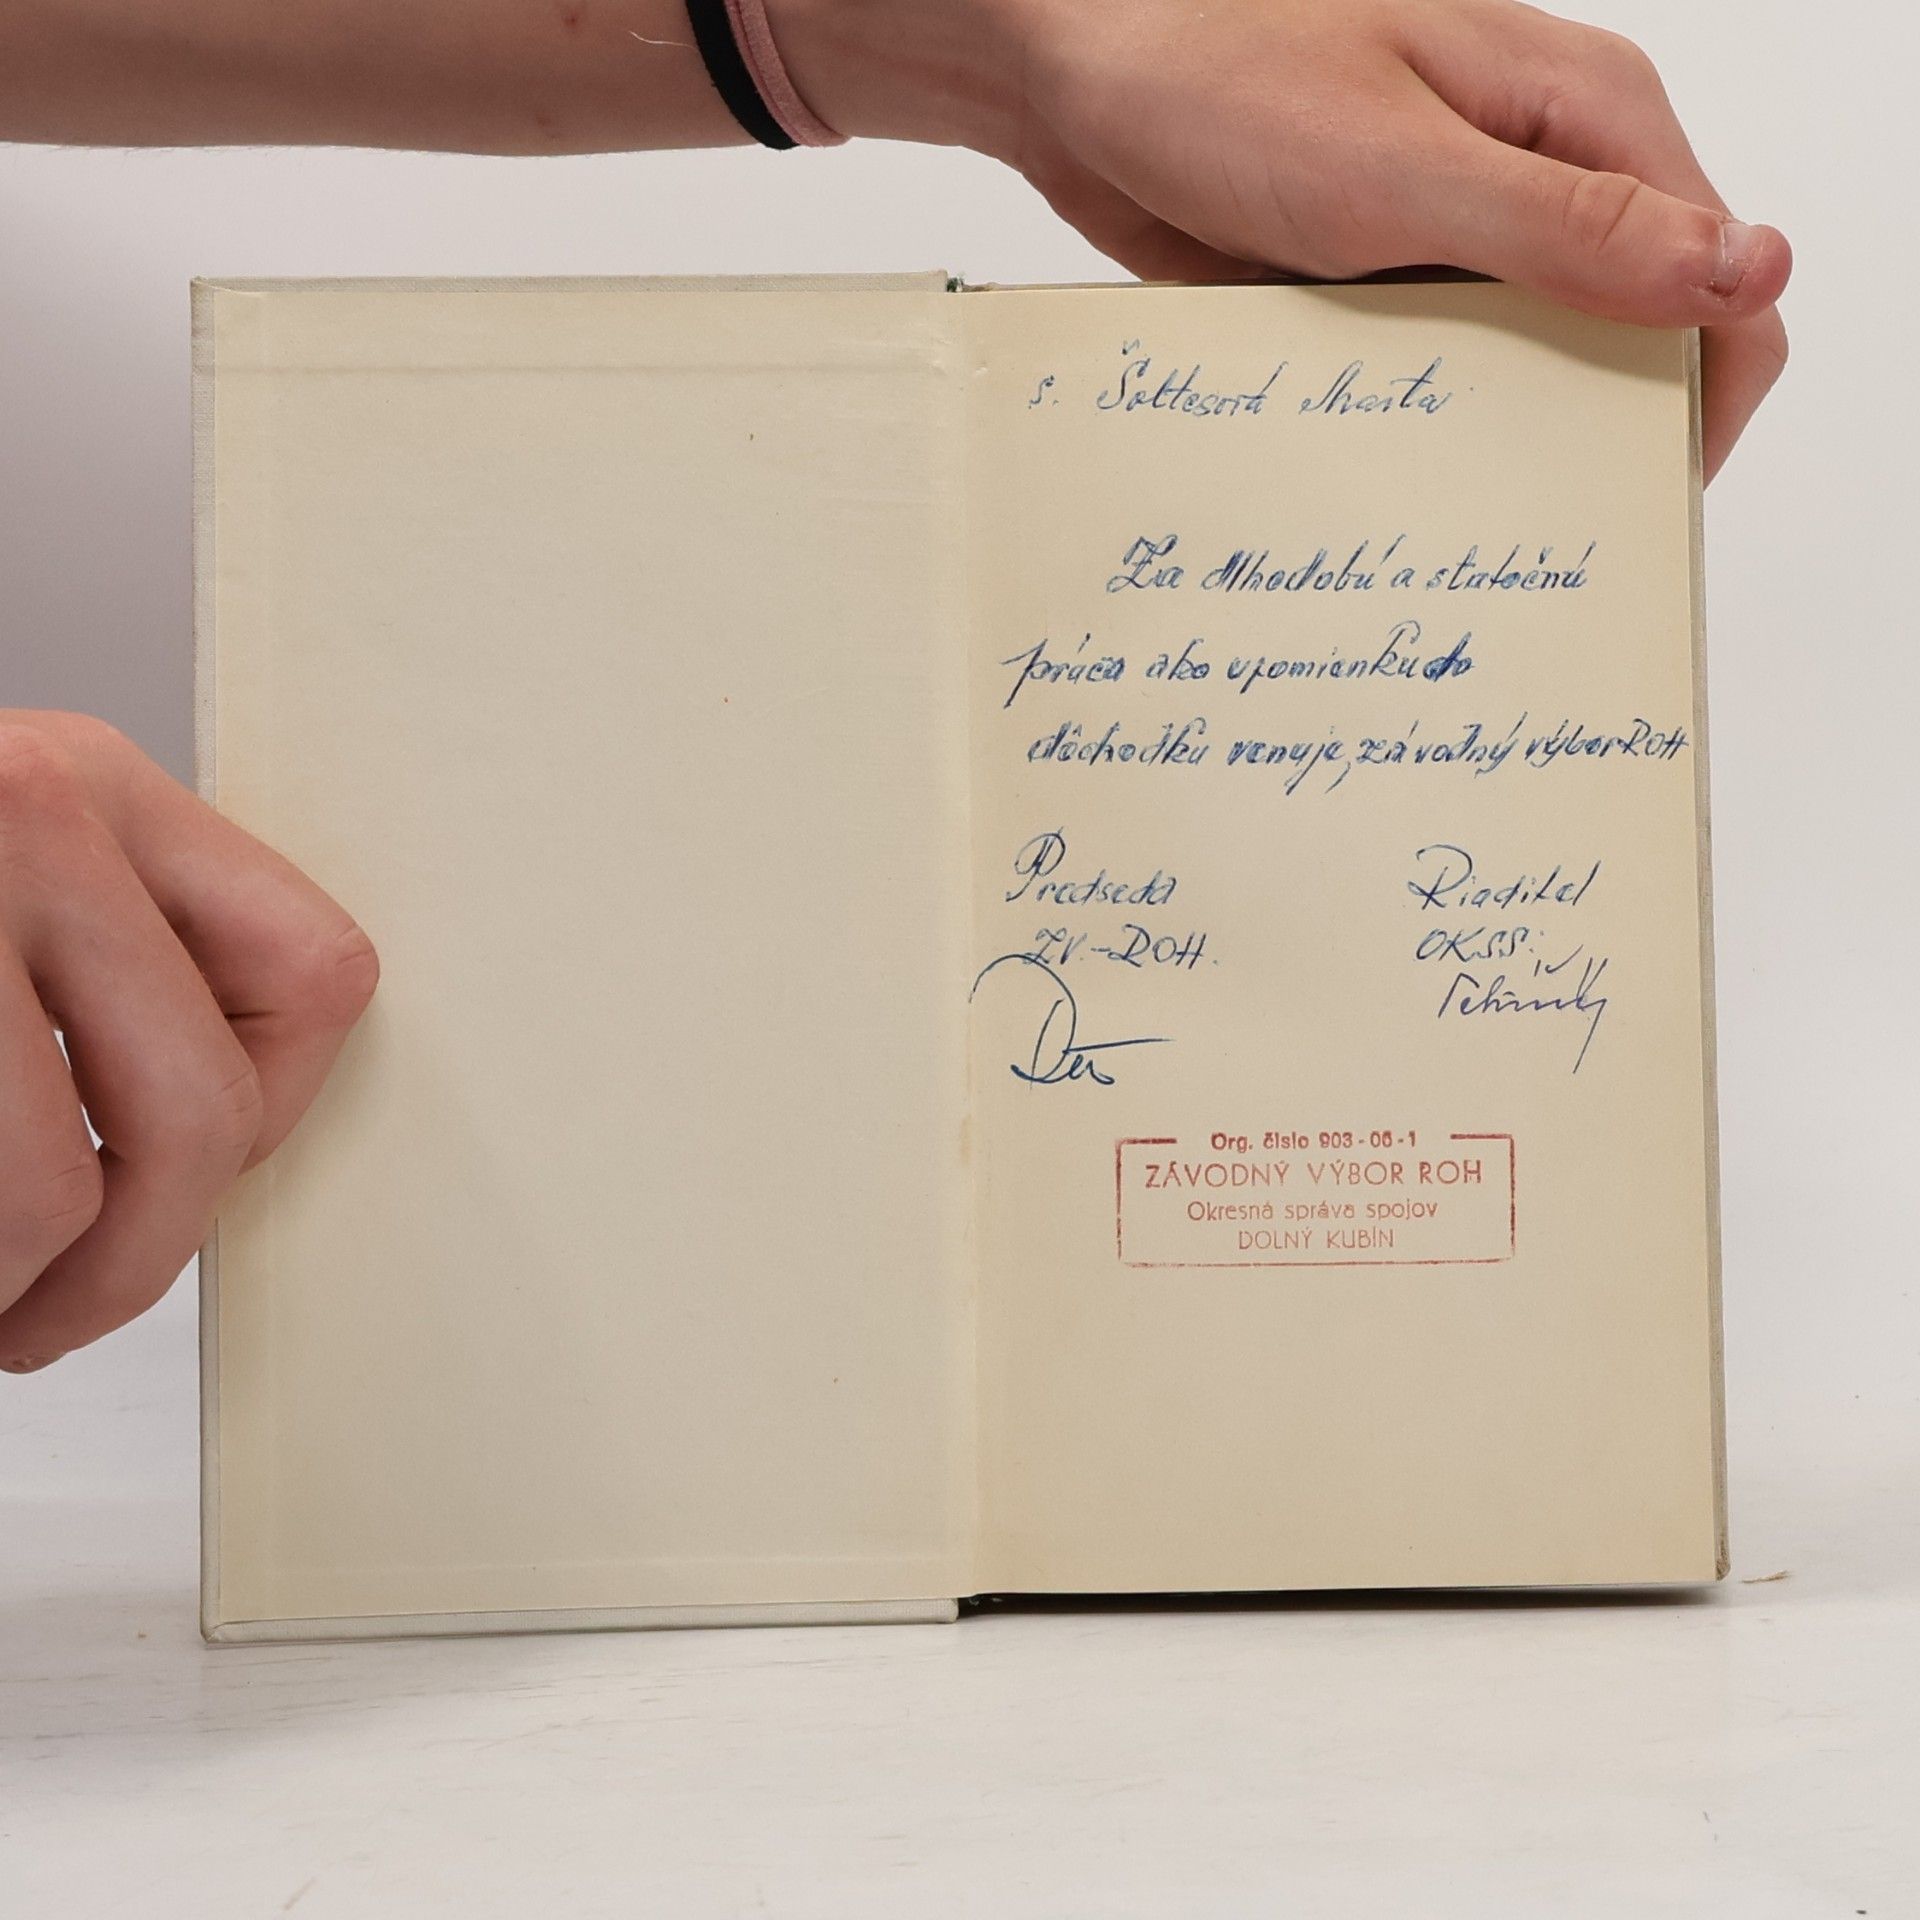 s. Šoltesová Marta
Za dlhodobú a statočnú
práca ako upomienku do
dôchodku venuje, závodný výbor ROH
Predseda
ZV.-ROH.
Riaditel
OKSS:
Org. číslo 903-06-1
ZÁVODNÝ VÝBOR ROH
Okresná správa spojov
DOLNÝ KUBÍN